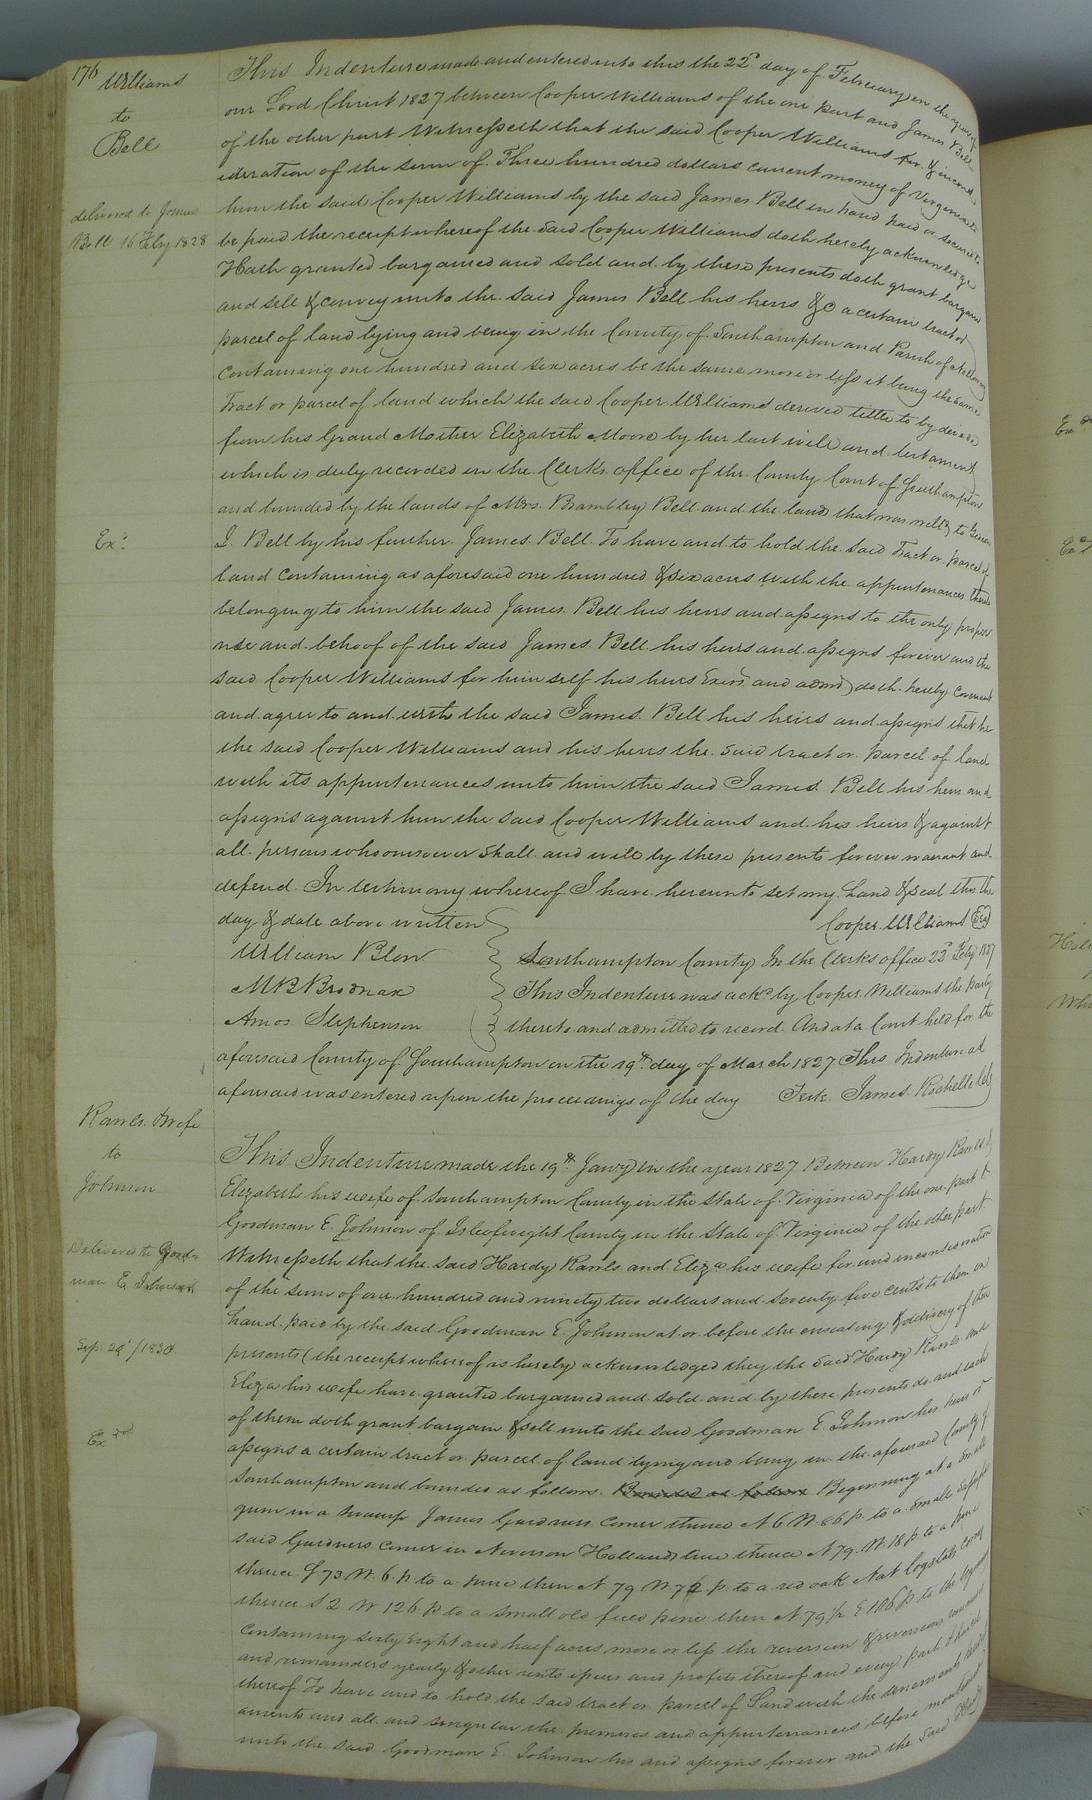 176
Williams
to
Bell
delivered to James
Bell 16 Feby 1828
Exd.
This Indenture made and entered into this the 22d. day of February in the year of
our Lord Christ 1827 between Cooper Williams of the one part and James Bell
of the other part Witnesseth that the said Cooper Williams for & in cond
ideration of the sum of Three hundred dollars current money of Virginia to
him the said Cooper Williams by the said James Bell in hand paid or secured to
be paid the receipt whereof the Said Cooper Williams doth hereby acknowledge
Hath granted bargained and sold and by these presents doth grant bargain
and sell & convey unto the said James Bell his heirs &c a certain tract or
parcel of land lying and being in the County of Southampton and Parish of
containing one hundred and six acres be the same more or less it being the same
Tract or parcel of land which the said Cooper Williams derived title to by devise
from his Grand Mother Elizabeth Moore by her last will and testament
which is duly recorded in the Clerks office of the County Court of Southampton
and bounded by the lands of Mrs. Brambley Bell and the land that was to
J. Bell by his father James Bell. To have and to hold the said Tract or parcel of
land containing as aforesaid one hundred & six acres with the appurtenances thereto
belonging to him the said James Bell his heirs and assigns to the only proper
use and behoof of the said James Bell his heirs and assigns forever and the
said Cooper Williams for himself his heirs Exors. and admrs doth hereby covenant
and agree to and with the said James Bell his heirs and assigns that he
the said Cooper Williams and his heirs the said tract or parcel of land
with its appurtenances unto him the said James Bell his heirs and
assigns against him the said Cooper Williams and his heirs & against
all persons whomsoever Shall and will by these presents forever warrant and
defend. In testimony whereof I have hereunto set my hand & seal this the
day & date above written
Cooper Williams
William Blow
M B Brodnax
Amos Stephenson
Southampton County In the Clerks office 22d Feby 1827
This Indenture was ackd. by Cooper Williams the party
thereto and admitted to record. And at a Court held for the
aforesaid County of Southampton on the 19th. day of March 1827 This Indenture as
aforesaid was entered upon the proceedings of the day Teste. James Rochelle Clk
Rawls & wife
to
Johnson
Delivered to Good-
man E Johnson
Sep. 24 /1830
Exd.
This Indenture made the 19th. Jany in the year 1827 Between Hardy Rawls &
Elizabeth his wife of Southampton County in the State of Virginia of the one part &
Goodman E. Johnson of Isleofwight County in the State of Virginia of the other part
Witnesseth that the said Hardy Rawls and Eliza. his wife for and in consideration
of the sum of one hundred and ninety two dollars and Seventy five cents to them in
hand paid by the said Goodman E Johnson at or before the ensealing & delivery of these
presents (the receipt whereof is hereby acknowledged they the said Hardy Rawls and
Eliza his wife have granted bargained and sold and by these presents do and each
of them doth grant bargain & sell unto the said Goodman E. Johnson his heirs or
assigns a certain tract or parcel of land lying and being in the aforesaid County of
Southampton and bounded as follows. Bounded as follows Beginning at a Small
gum in a swamp James Gardners corner thence N 6 W. 86 p. to a small
said Gardners corner in Newsom Hollands line thence N 79. W. 18 p. to a pine
thence S 73 W. 6. p. to a pine then N 79 W 72 p. to a red oak Nat corner
thence S 2 W 126 p to a small old field pine then N 79 1/2 E 106 p to the beginning
containing sixty eight and half acres more or less the reversion & reversions remainder
and remainders yearly & other rents issues and profits thereof and every part & parcel
thereof To have and to hold the said tract or parcel of Land with the tenements
aments and all and singular the premises and appurtenances before mentioned
unto the said Goodman E. Johnson his and assigns forever and the said Hardy